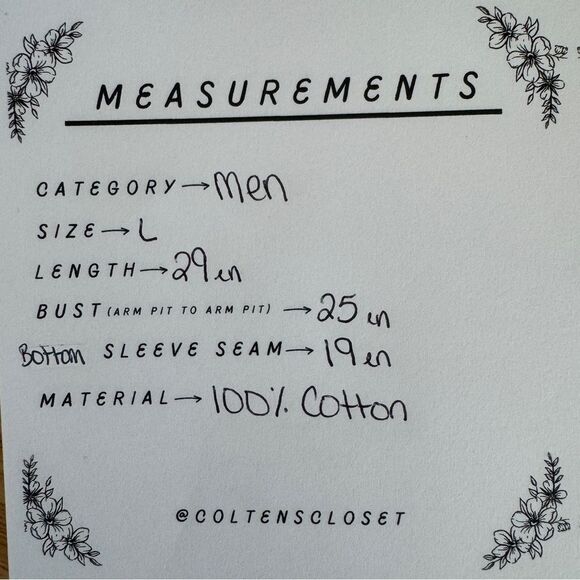 MEASUREMENTS
CATEGORY→Men
SIZE→L
LENGTH→29in
BUST (ARM PIT TO ARM PIT) →25 in
Bottom SLEEVE SEAM→19 in
MATERIAL→100% Cotton
@COLTENSCLOSET